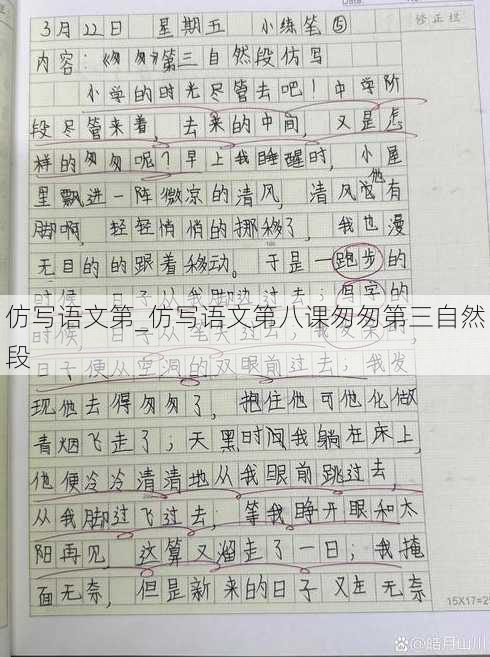 3月22日 星期五 小练笔⑤
修正栏
内容:《匆匆》第三自然段仿写
小学的时光尽管去吧!中学阶
段尽管来着,去来的中间,又是怎
样的匆匆呢?早上我睡醒时,小屋
里飘进一阵微凉的清风,清风他有
脚啊,轻轻悄悄的挪移了,我也漫
无目的的跟着移动。于是一跑步的
时候,日子从我脚边过去;写字的
时候,日子从我笔尖过去;我发呆时,
仿写语文第_仿写语文第八课匆匆第三自然
段
日子便从空洞的双眼前过去;我发
现他去得匆匆了,抱住他可他化做
青烟飞走了;天黑时间我躺在床上,
他便冷冷清清地从我眼前跳过去,
从我脚过飞过去;等我睁开眼和太
阳再见,这算又溜走了一日;我掩
面无奈,但是新来的日子又在无奈
15X17=2
百家号/皓月山川